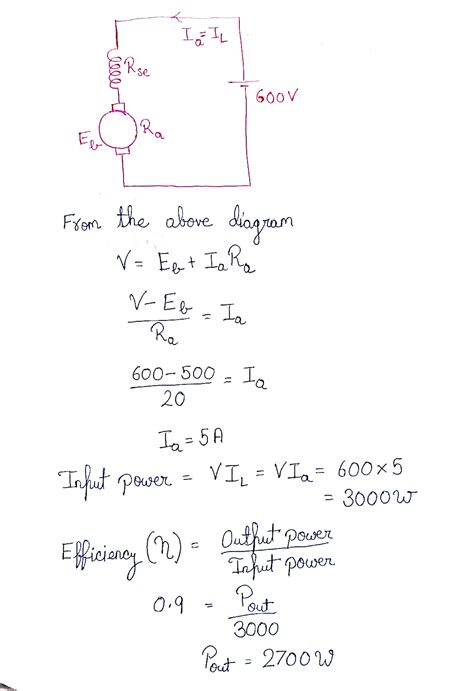 I_a = I_L
R_se
600V
E_b
R_a
From the above diagram
V = E_b + I_a R_a
V - E_b / R_a = I_a
600 - 500 / 20 = I_a
I_a = 5A
Input power = V I_L = V I_a = 600 × 5
= 3000W
Efficiency (η) = Output power / Input power
0.9 = P_out / 3000
P_out = 2700W